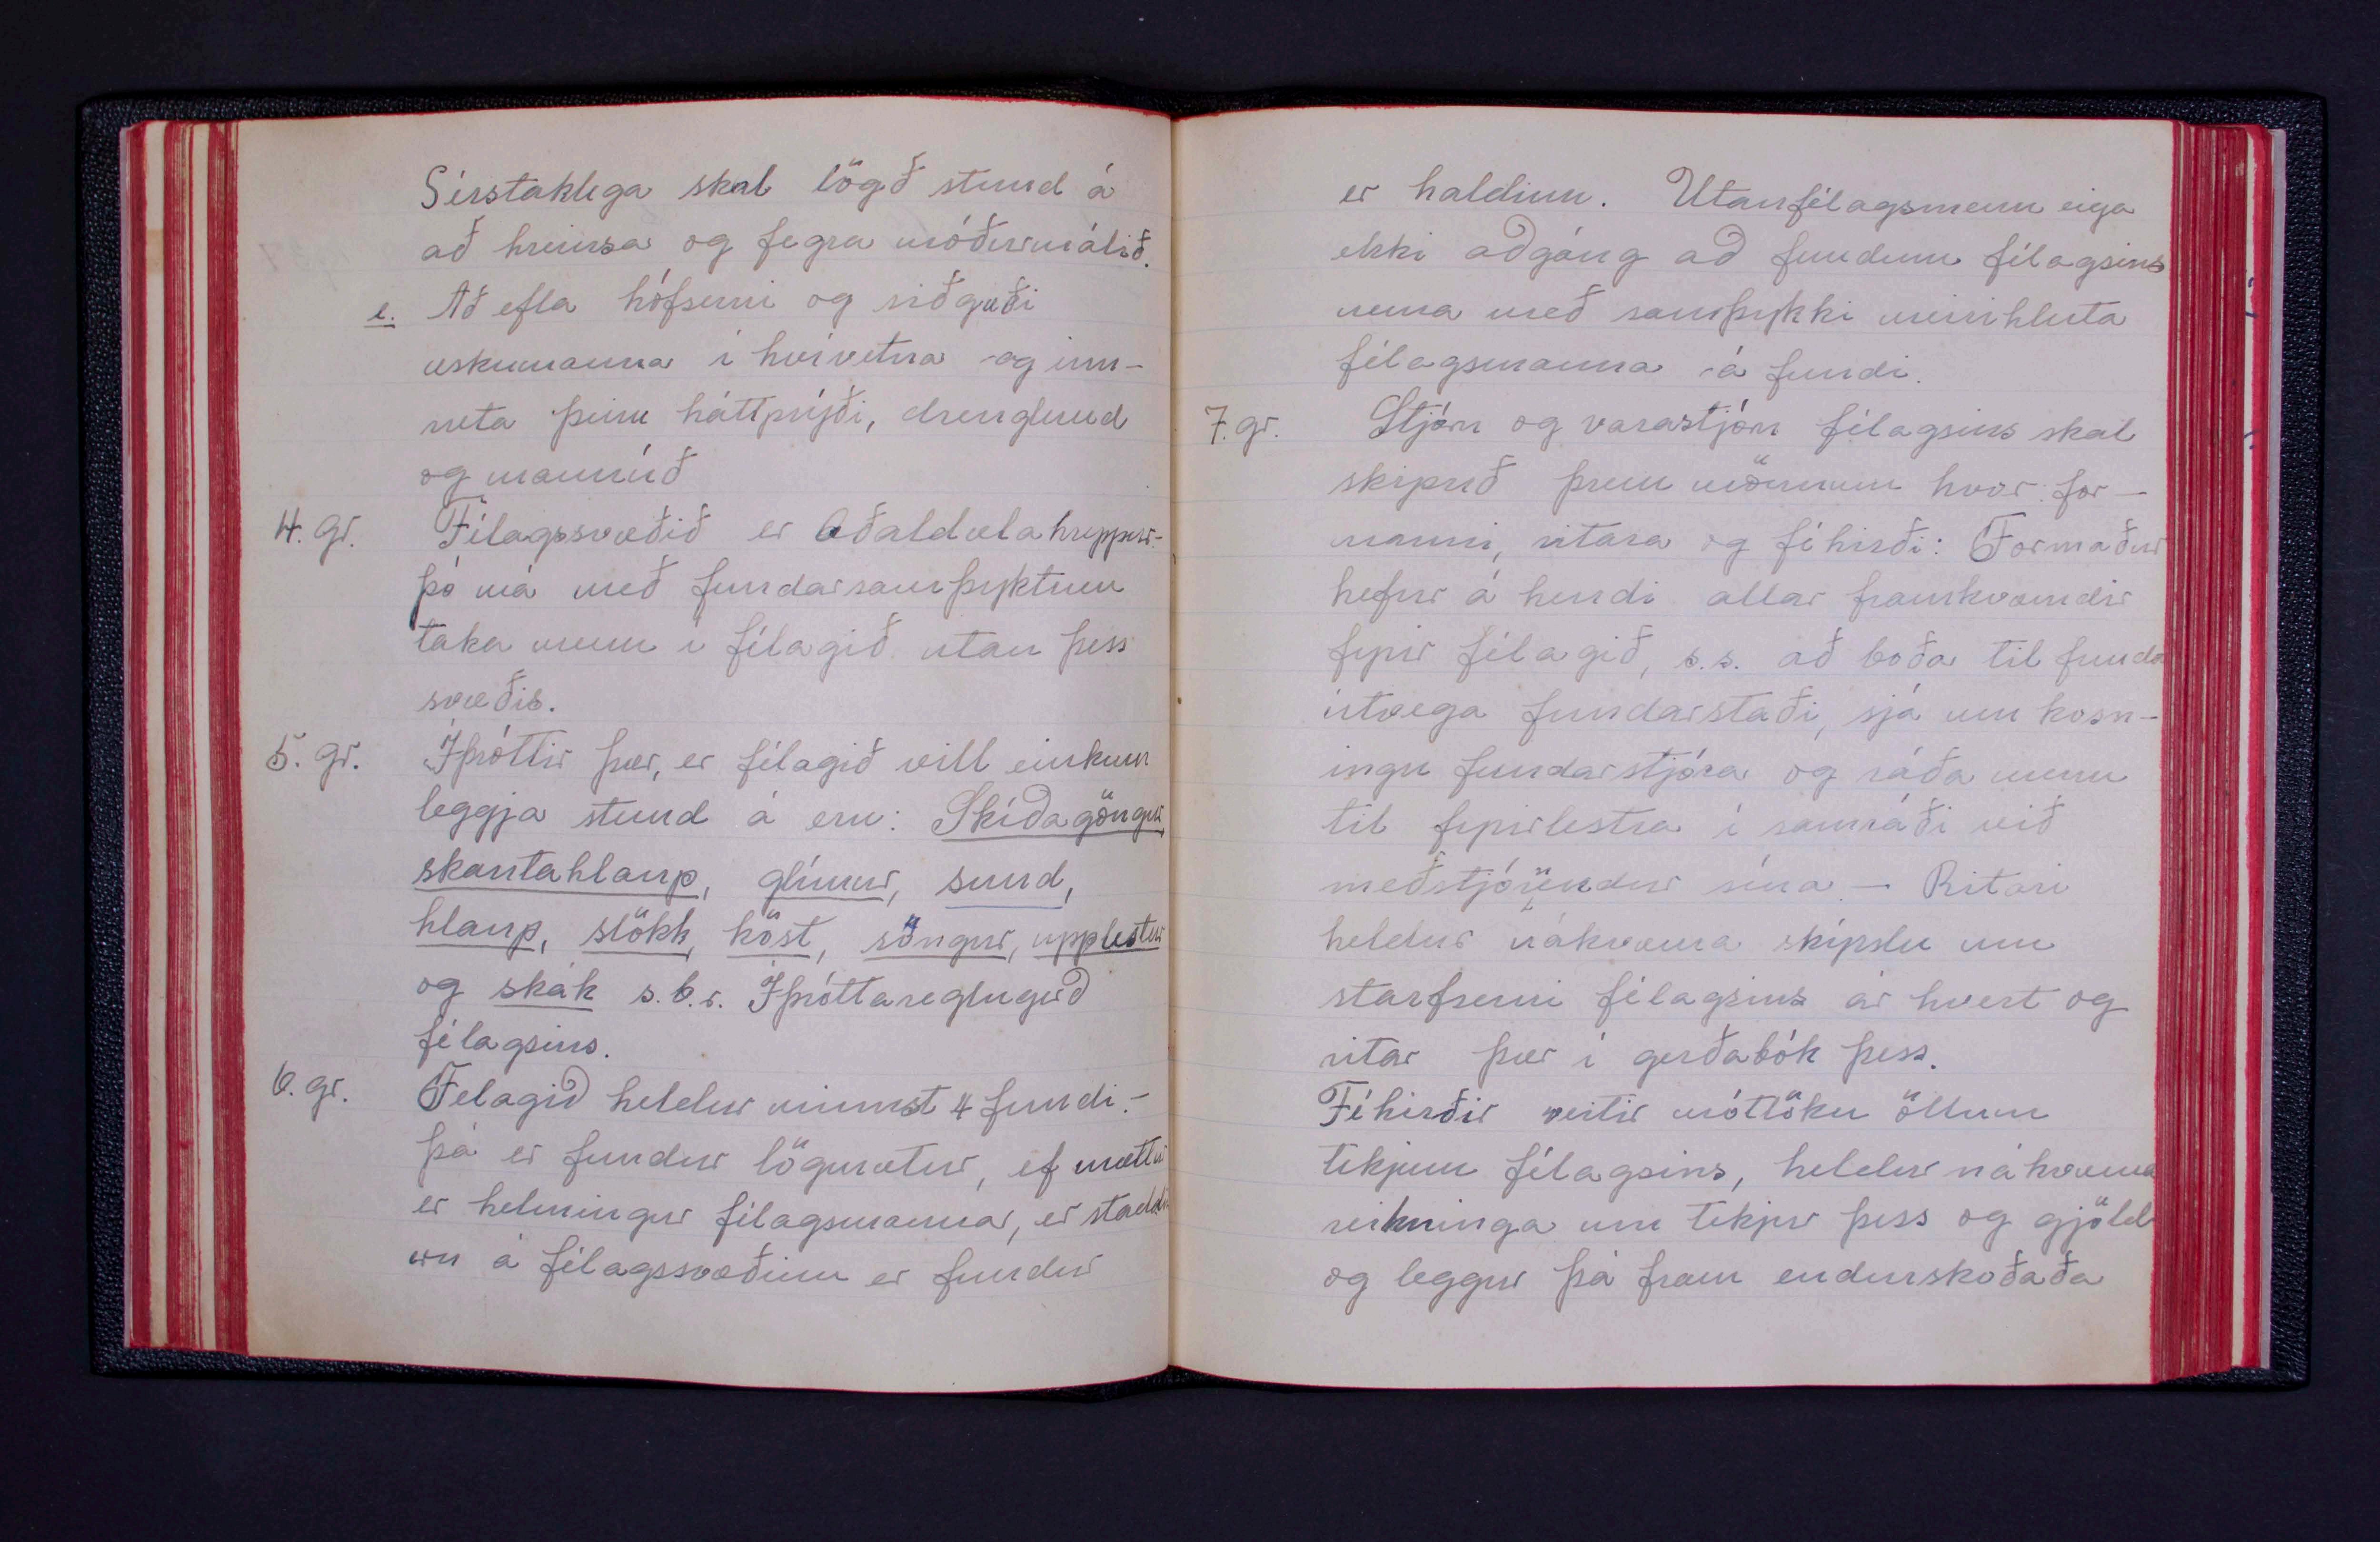 Sérstaklega skal lögð stund á
að hreinsa og fegra móðurmálið.
e. Að efla hófsemi og siðgæði
æskumanna í hvívetna og inn-
ræta þeim háttprýði, drenglund
og mannúð
4. gr. Félagssvæðið er Aðaldælahreppur.-
þó má með fundarsamþyktum
taka menn í félagið utan þess
svæðis.
5. gr. Íþróttir þær, er félagið vill einkum
leggja stund á eru: Skíðagöngur
skautahlaup, glímur, sund,
hlaup, stökk, köst, söngur, upplestur
og skák s.b.r. Íþróttareglugerð
félagsins.
6. gr. Felagið heldur minnst 4 fundi.-
þá er fundur lögmætur, ef mættur
er helmingur félagsmanna, er staddir
eru á félagssvæðinu er fundur
er haldinn. Utanfélagsmenn eiga
ekki aðgáng að fundum félagsins
nema með samþykki meirihluta
félagsmanna á fundi.
7. gr. Stjórn og varastjórn félagsins skal
skipuð þrem mönnum hvor: for-
manni, ritara og féhirði: Formaður
hefur á hendi allar framkvæmdir
fyrir félagið, s.s. að boða til funda
útvega fundarstaði, sjá um kosn-
ingu fundarstjóra og ráða menn
til fyrirlestra í samráði við
meðstjórnendur sína - Ritari
heldur nákvæma skýrslu um
starfsemi félagsins ár hvert og
ritar þær í gerðabók þess.
Féhirðir veitir móttöku öllum
tekjum félagsins, heldur nákvæma
reikninga um tekjur þess og gjöld
og leggur þá fram endurskoðaða